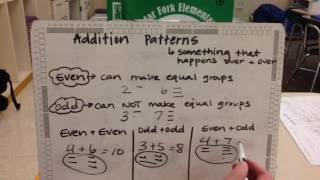 dar Fork Elementa
Addition Patterns
↳ something that
happens over + over
Even → can make equal groups
2 6
odd → can NOT make equal groups
3 7
Even + Even odd + odd Even + odd
4 + 6 = 10 3 + 5 = 8 4 + 7